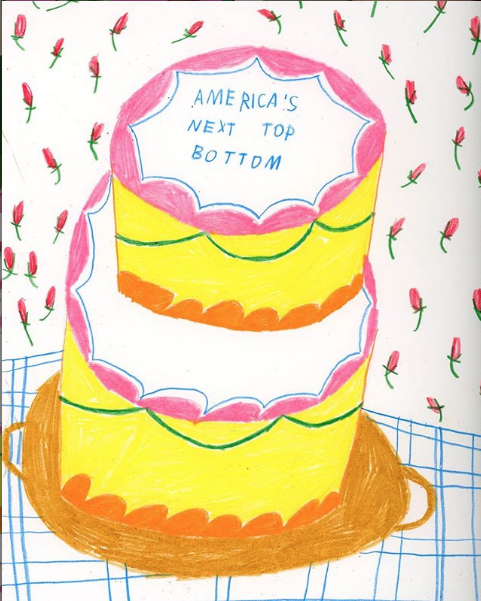 AMERICA'S
NEXT TOP
BOTTOM